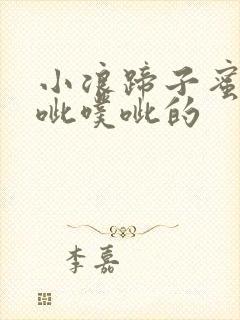 小浪蹄子蜜
呲噗呲的
李嘉